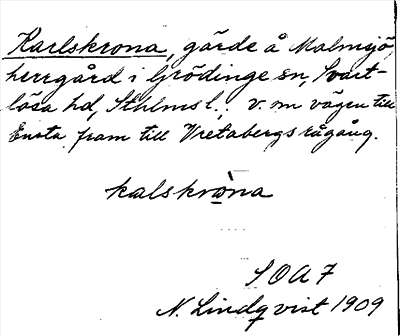 Karlskrona, gärde å Malmsjö,
herrgård i Grödinge sn, Svart-
lösa hd, Sthlms l., v. om vägen till
Ensta fram till Vretabergs rågång.
kalskròna
SOA 7
N. Lindqvist 1909